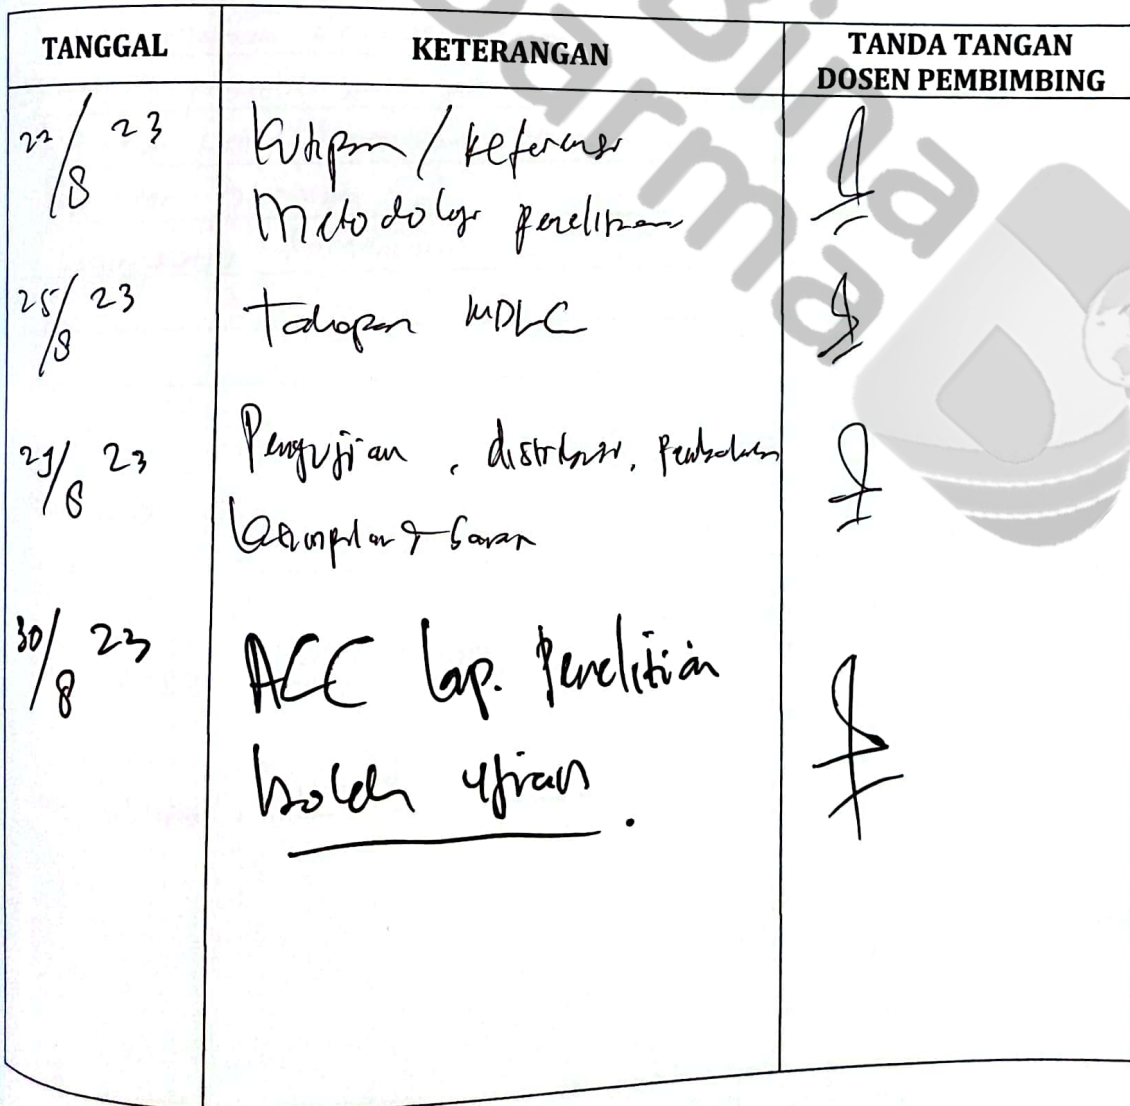 Bina
Darma
TANGGAL
KETERANGAN
TANDA TANGAN
DOSEN PEMBIMBING
22/8 23
Kutipan / Referensi
Metodologi penelitian
25/8 23
Tahapan MDLC
29/8 23
Pengujian, distribusi, pembahasan
kesimpulan & saran
30/8 23
ACC lap. Penelitian
boleh ujian.